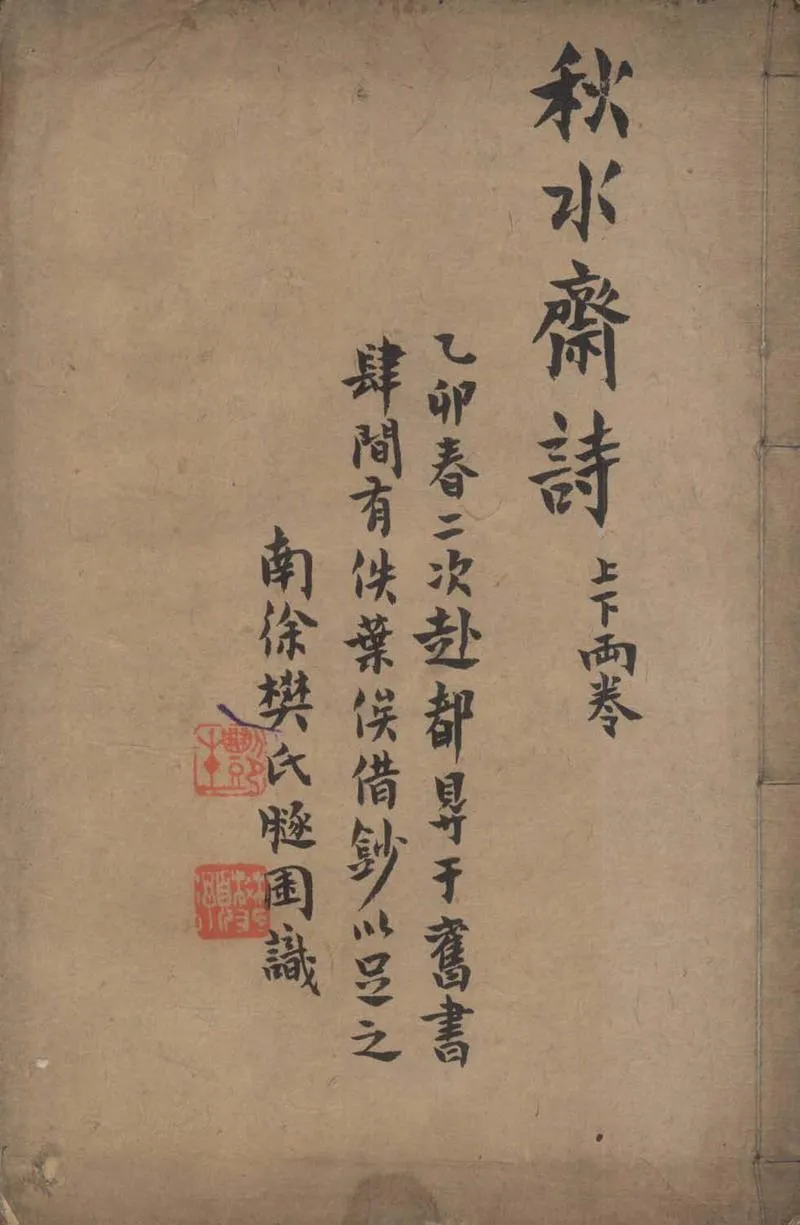 秋水齋詩
上下兩卷
乙卯春二次赴都昇于舊書
肆間有佚葉俟借鈔以足之
南徐樊氏䐁圃識